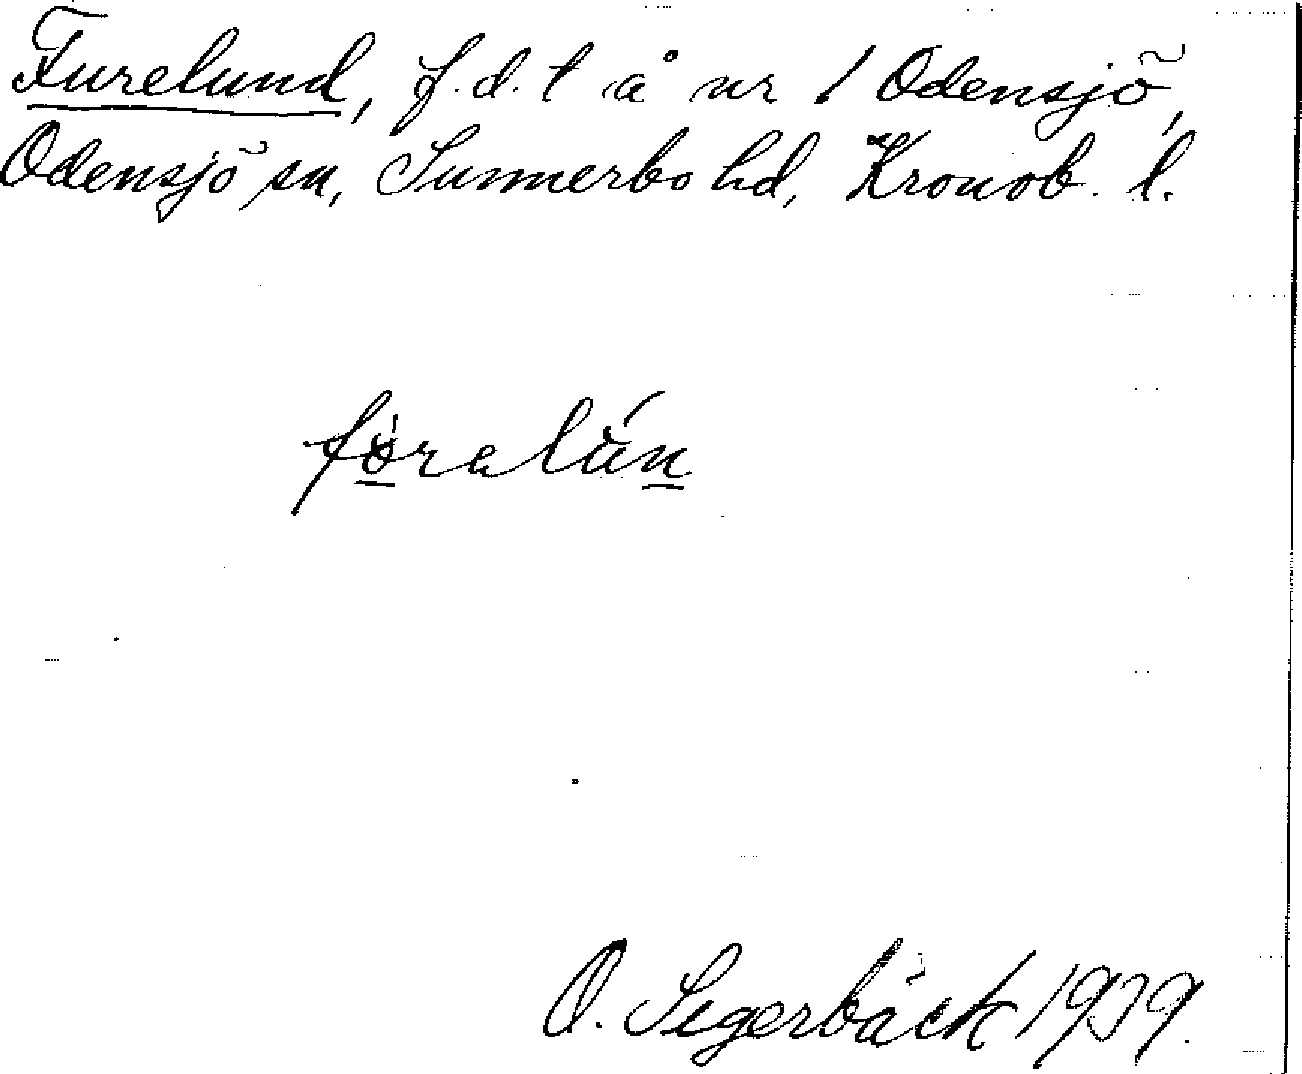 Furelund, f.d. t å nr 1 Odensjö,
Odensjö sn, Sunnerbo hd, Kronob. l.
føralún
O. Segerbäck 1939.